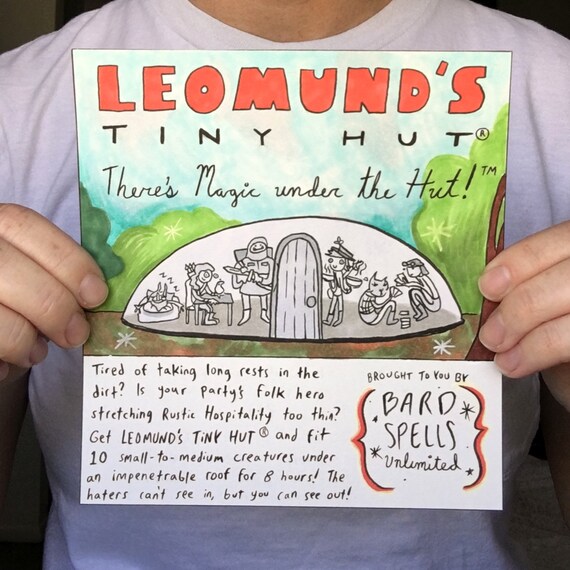 LEOMUND'S
TINY HUT®
There's Magic under the Hut!™
Tired of taking long rests in the
dirt? Is your party's folk hero
stretching Rustic Hospitality too thin?
Get LEOMUND'S TINY HUT® and fit
10 small-to-medium creatures under
an impenetrable roof for 8 hours! The
haters can't see in, but you can see out!
BROUGHT TO YOU BY
BARD
SPELLS
Unlimited